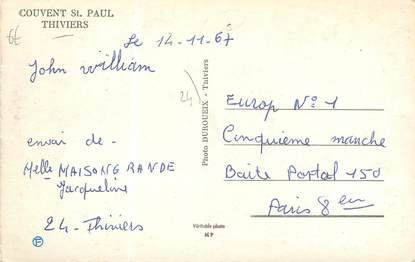 COUVENT St. PAUL
THIVIERS
6E
Le 14-11-67
John william
envoi de -
Melle MAISONGRANDE
Jacqueline
24 - Thiviers
24
Photo DUROUEIX - Thiviers
Europ N° 1
Cinquième manche
Boite Postal 150
Paris 8 em
Véritable photo